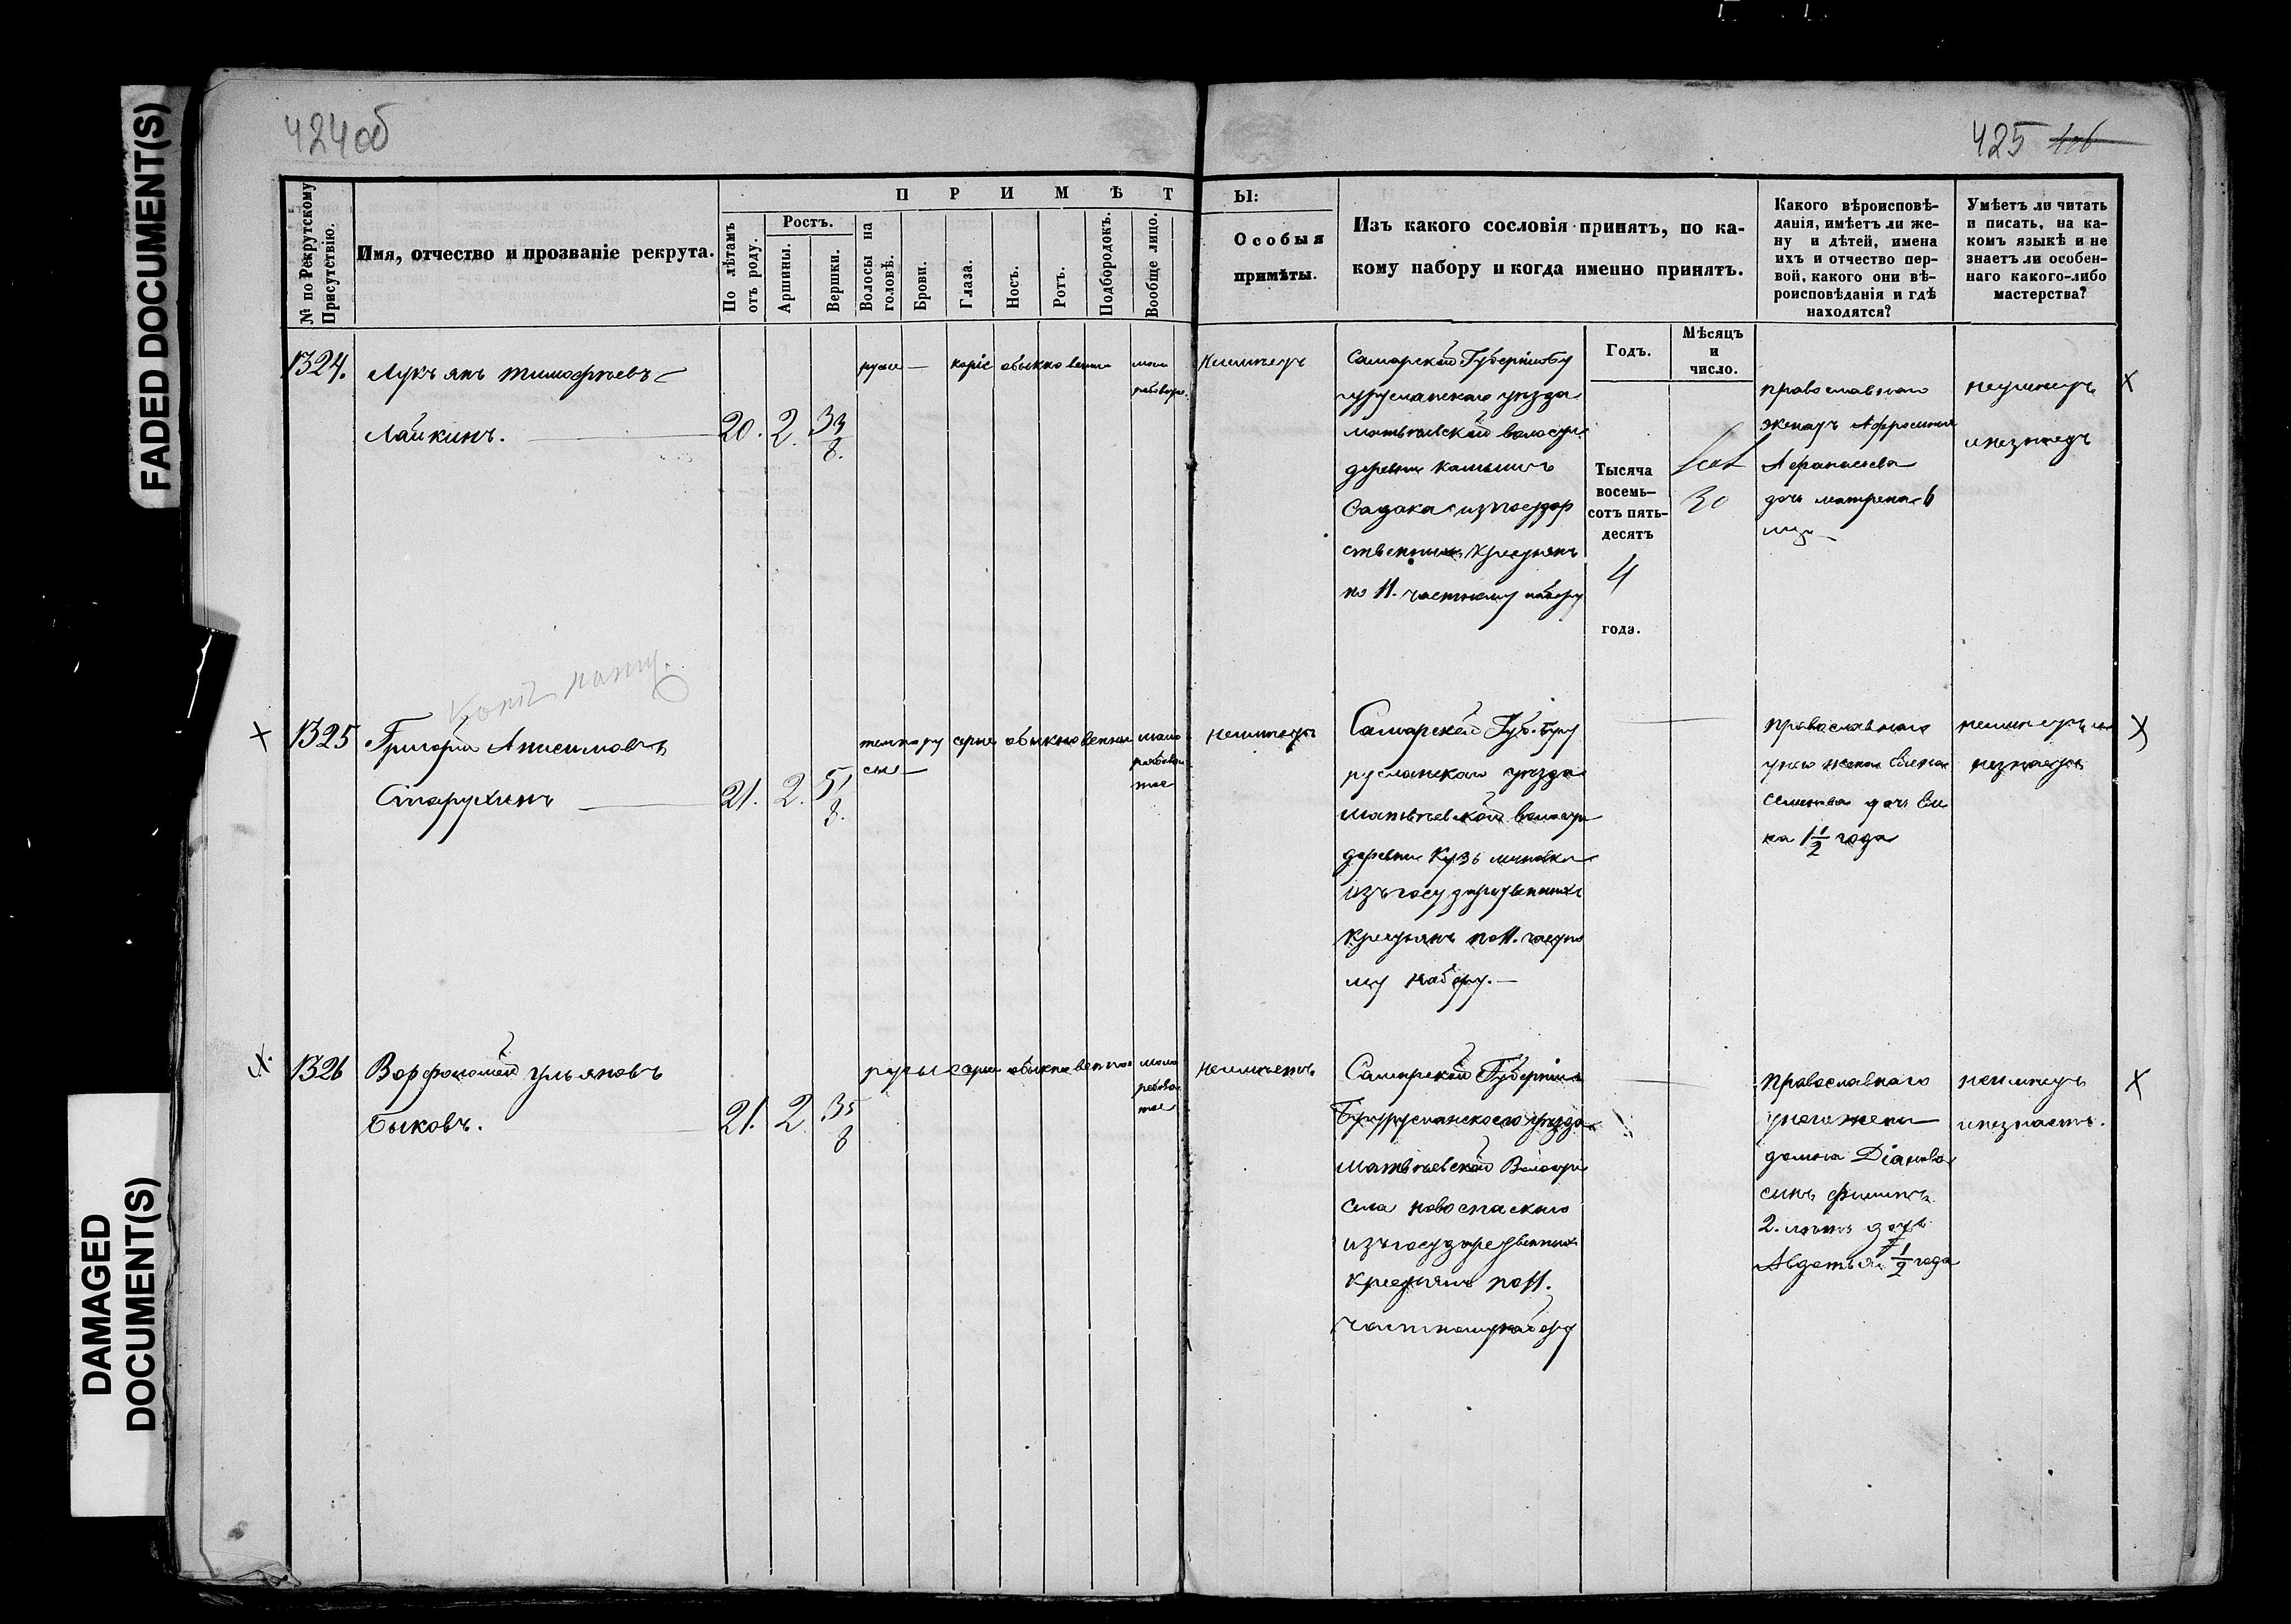 424об
425
FADED DOCUMENT(S)
DAMAGED
DOCUMENT(S)
П Р И М Ѣ Т Ы:
№ по Рекрутскому
Присутствію.
Имя, отчество и прозваніе рекрута.
По лѣтамъ
отъ роду.
Ростъ.
Аршины.
Вершки.
Волосы на
головѣ.
Брови.
Глаза.
Носъ.
Ротъ.
Подбородокъ.
Вообще лицо.
Особыя
примѣты.
Изъ какого сословія принятъ, по ка-
кому набору и когда именно принятъ.
Какого вѣроисповѣ-
данія, имѣетъ ли же-
ну и дѣтей, имена
ихъ и отчество пер-
вой, какого они вѣ-
роисповѣданія и гдѣ
находятся?
Умѣетъ ли читать
и писать, на ка-
комъ языкѣ и не
знаетъ ли особен-
наго какого-либо
мастерства?
Годъ.
Мѣсяцъ
и
число.
1324.
Лукъянъ тимофѣевъ
Лайкинъ.
20. 2. 3 3/8.
русые
каріе
обыкновенно
Неимѣетъ
Самарской Губерніи Бу
гурусланскаго уѣзда
матвѣевской волости
деревни
Садака изъ государ
ственныхъ крестьянъ
по 11. частному набору
Тысяча
восемь-
сотъ пять-
десятъ
4
года.
30
православнаго
женатъ Афросинья
Афанасьева
дочь матрена 6
неумѣетъ
инезнаетъ
Х
Х
1325
Григорій Анисимовъ
Старухинъ
21. 2. 5 1/8.
темнору
сые
серые
обыкновенно
мало
рябова
тое
неимѣетъ
Самарской Губ. Бугу
русланскаго уѣзда
матвѣевской волости
деревни Кузьминовки
изъ государственныхъ
крестьянъ по 11. частно
му набору.
православнаго
унего жена Елена
дочь
1 1/2 года
незнаетъ
Х
Х.
1326
Ворфоломей Ульяновъ
Быковъ.
21. 2 3 5/8
русые
серые
обыкновенное
мало
рябова
тое
Неимѣетъ
Самарской Губерніи
Бугурусланскаго уѣзда
матвѣевской Волости
села новоспаскаго
изъ государственныхъ
крестьянъ по 11.
частному набору
православнаго
унего жена
домна
сынъ филипъ
2. лѣтъ дочь
Авдотья 1/2 года
неумѣетъ
инезнаетъ.
Х